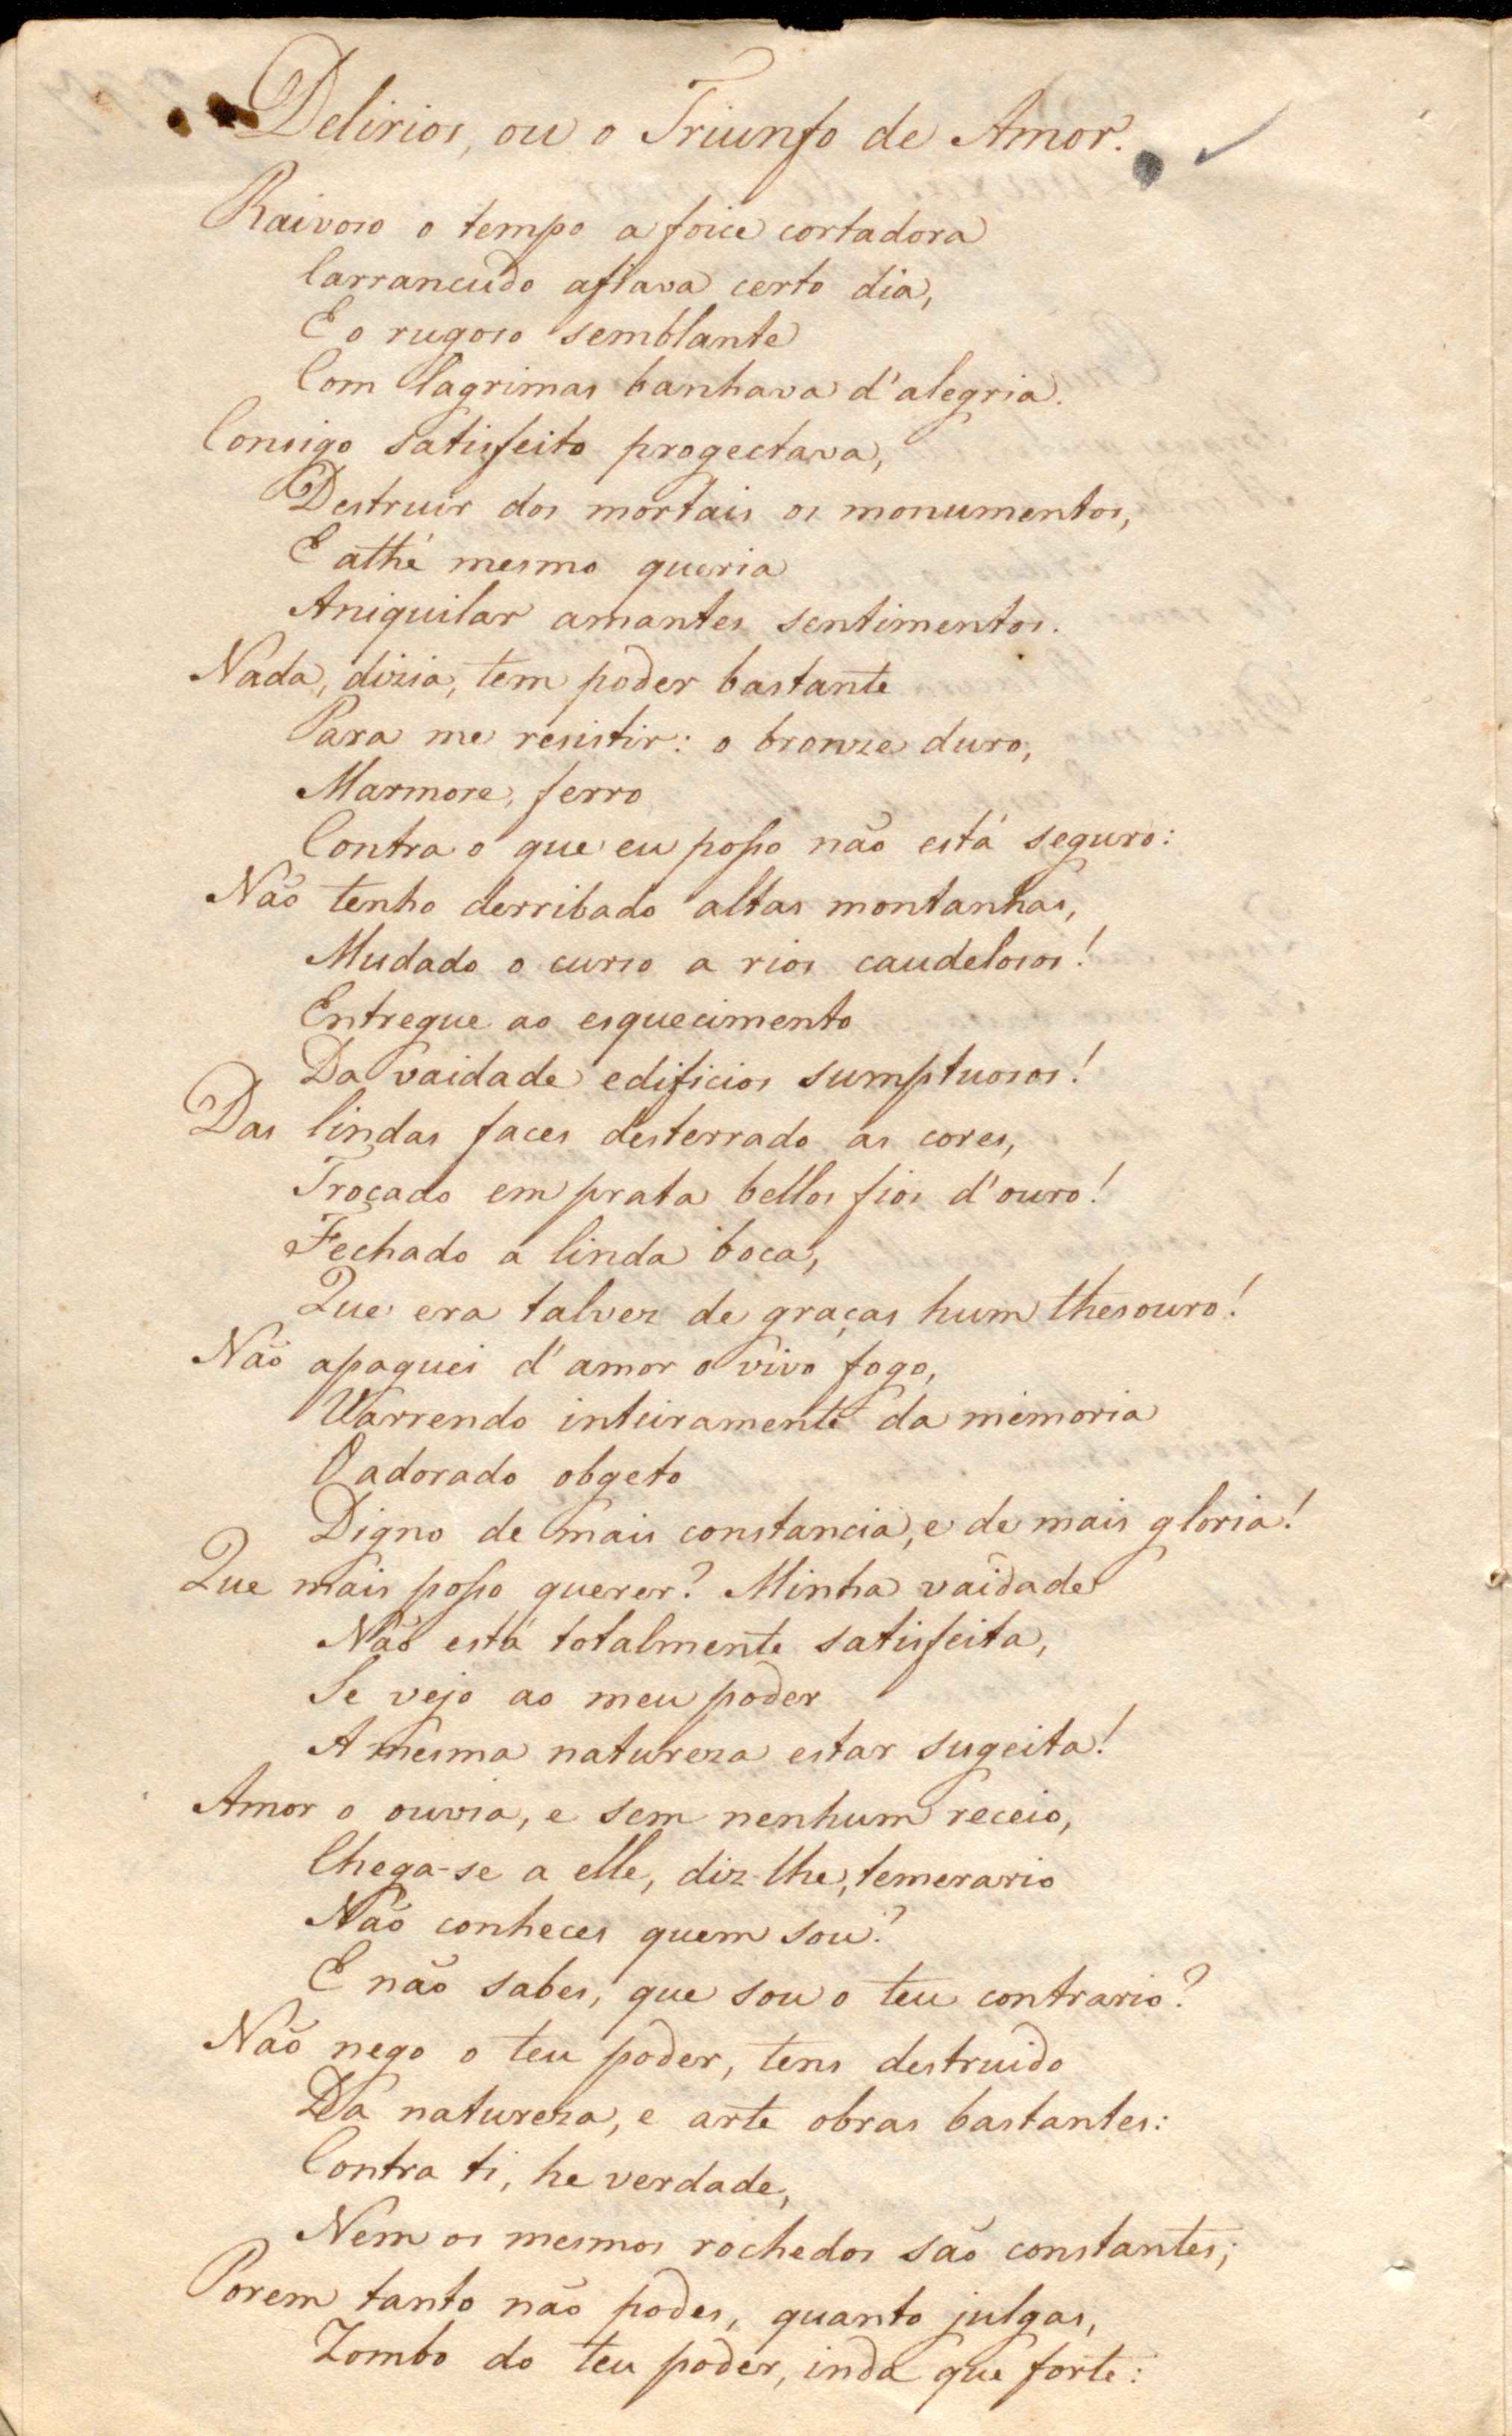 Delirios, ou o Triunfo de Amor.
Raivoso o tempo a foice cortadora
Carrancudo afiava certo dia,
E o rugoso semblante
Com lagrimas banhava d'alegria.
Consigo satisfeito progectava,
Destruir dos mortais os monumentos,
E athé mesmo queria
Aniquilar amantes sentimentos.
Nada, dizia, tem poder bastante
Para me resistir: o bronze duro,
Marmore, ferro
Contra o que eu posso não está seguro:
Não tenho derribado altas montanhas,
Mudado o curso a rios caudelosos!
Entregue ao esquecimento
Da vaidade edificios sumptuosos!
Das lindas faces desterrado as cores,
Trocado em prata bellos fios d'ouro!
Fechado a linda boca,
Que era talvez de graças hum thesouro!
Não apaguei d'amor o vivo fogo,
Varrendo inteiramente da memoria
O adorado obgeto
Digno de mais constancia, e de mais gloria!
Que mais posso querer? Minha vaidade
Não está totalmente satisfeita,
Se vejo ao meu poder
A mesma natureza estar sugeita!
Amor o ouvia, e sem nenhum receio,
Chega-se a elle, diz-lhe, temerario
Não conheces quem sou?
E não sabes, que sou o teu contrario?
Não nego o teu poder, tens destruido
Da natureza, e arte obras bastantes:
Contra ti, he verdade,
Nem os mesmos rochedos são constantes;
Porem tanto não podes, quanto julgas,
Zombo do teu poder, inda que forte: